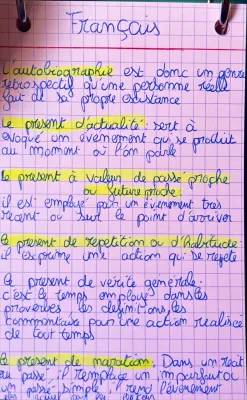 Français
L'autobiographie est donc un genre
retrospectif qu'une personne réelle
fait de sa propre existance
Le present d'actualité: sert à
evoque un évenement qui se produit
au moment où l'on parle
le présent à valeur de passé proche
ou futur proche:
il est employé pour un évenement très
recent ou sur le point d'arriver
le present de repetition ou d'habitude:
il exprime une action qui se répète
le present de verité generale:
c'est le temps employé dans les
proverbes les definitions, les
commentaire pour une action realisée
de tout temps
Le present de narration: Dans un récit
au passé, il remplace un imparfait ou
un passé simple il rend l'évenement